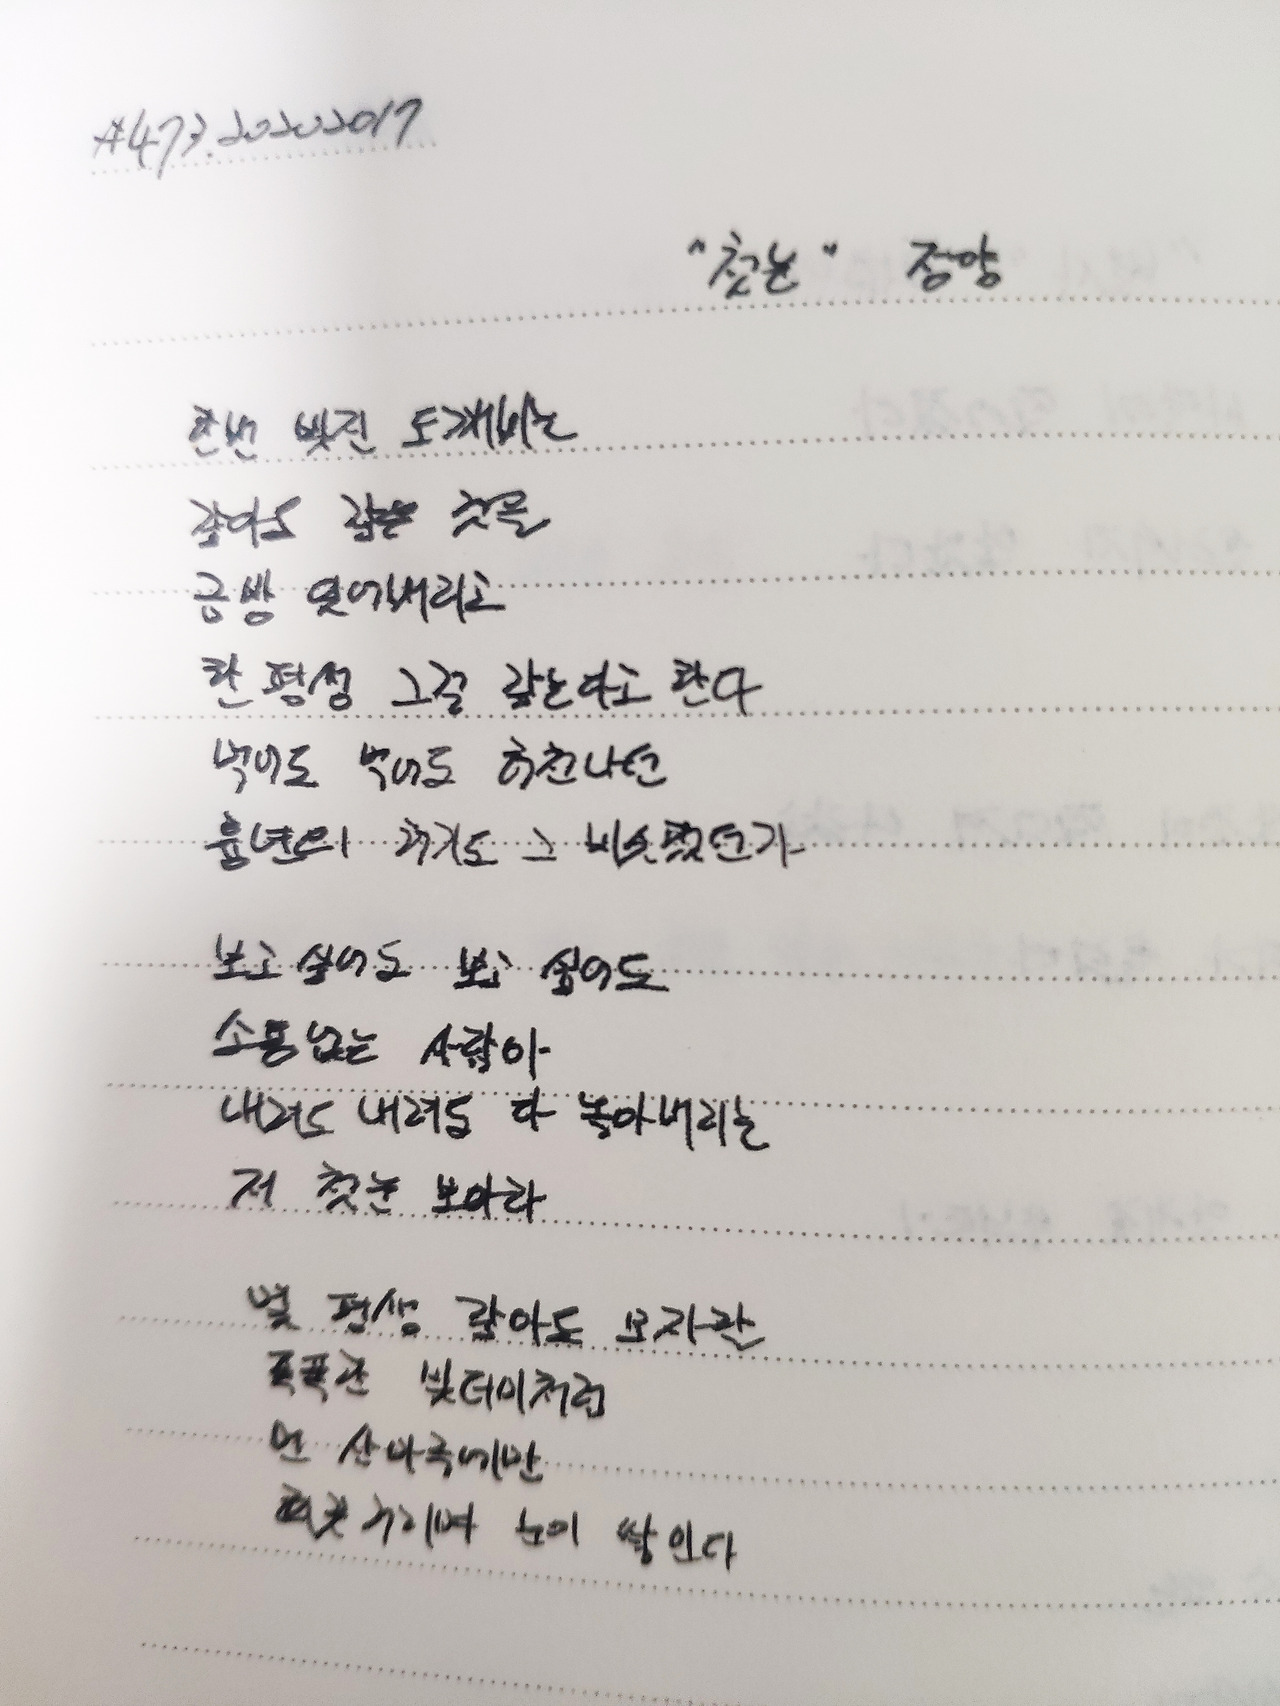 #473.20202017
"첫눈" 정양
한번 빚진 도깨비는
갚아도 갚은 것을
금방 잊어버리고
한 평생 그걸 갚는다고 한다
먹어도 먹어도 허천나던
흉년의 허기도 그 비슷했던가
보고 싶어도 보고 싶어도
소용없는 사람아
내려도 내려도 다 녹아버리는
저 첫눈 보아라
몇 평생 갚아도 모자랄
폭폭한 빚더미처럼
먼 산마루에만
희끗거리며 눈이 쌓인다